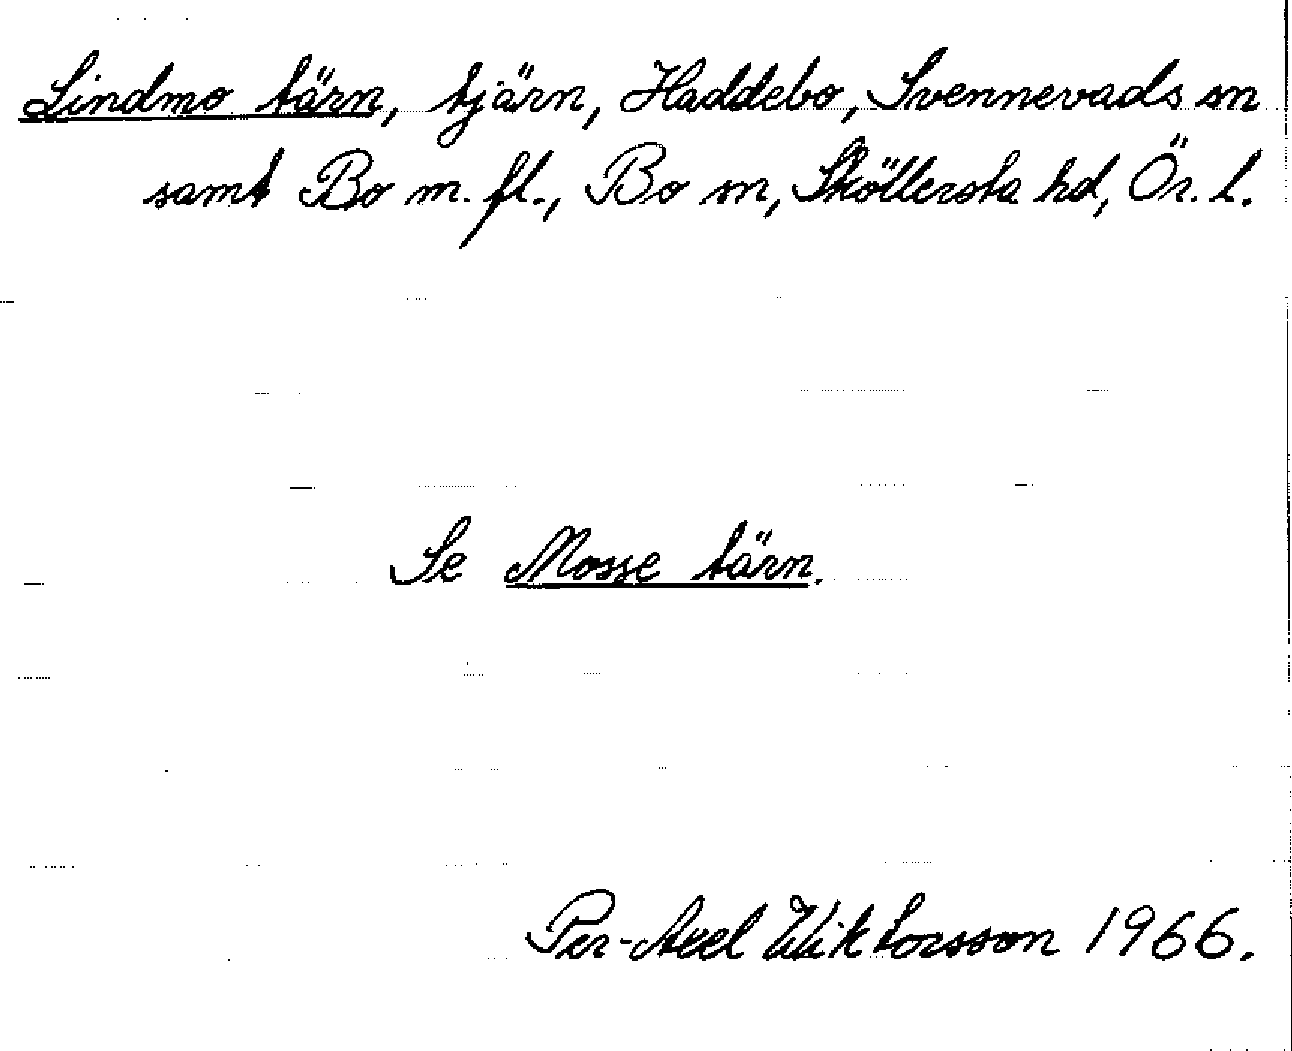 Lindmo tärn, tjärn, Haddebo, Svennevads sn
samt Bo m.fl., Bo sn, Sköllersta hd, Ör. l.
Se Mosse tärn.
Per-Axel Wiktorsson 1966.